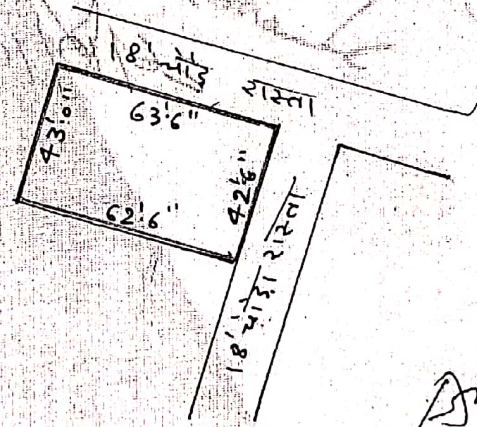 18' चौड़ा रास्ता
63'6"
43'0"
42'6"
62'6"
18' चौड़ा रास्ता